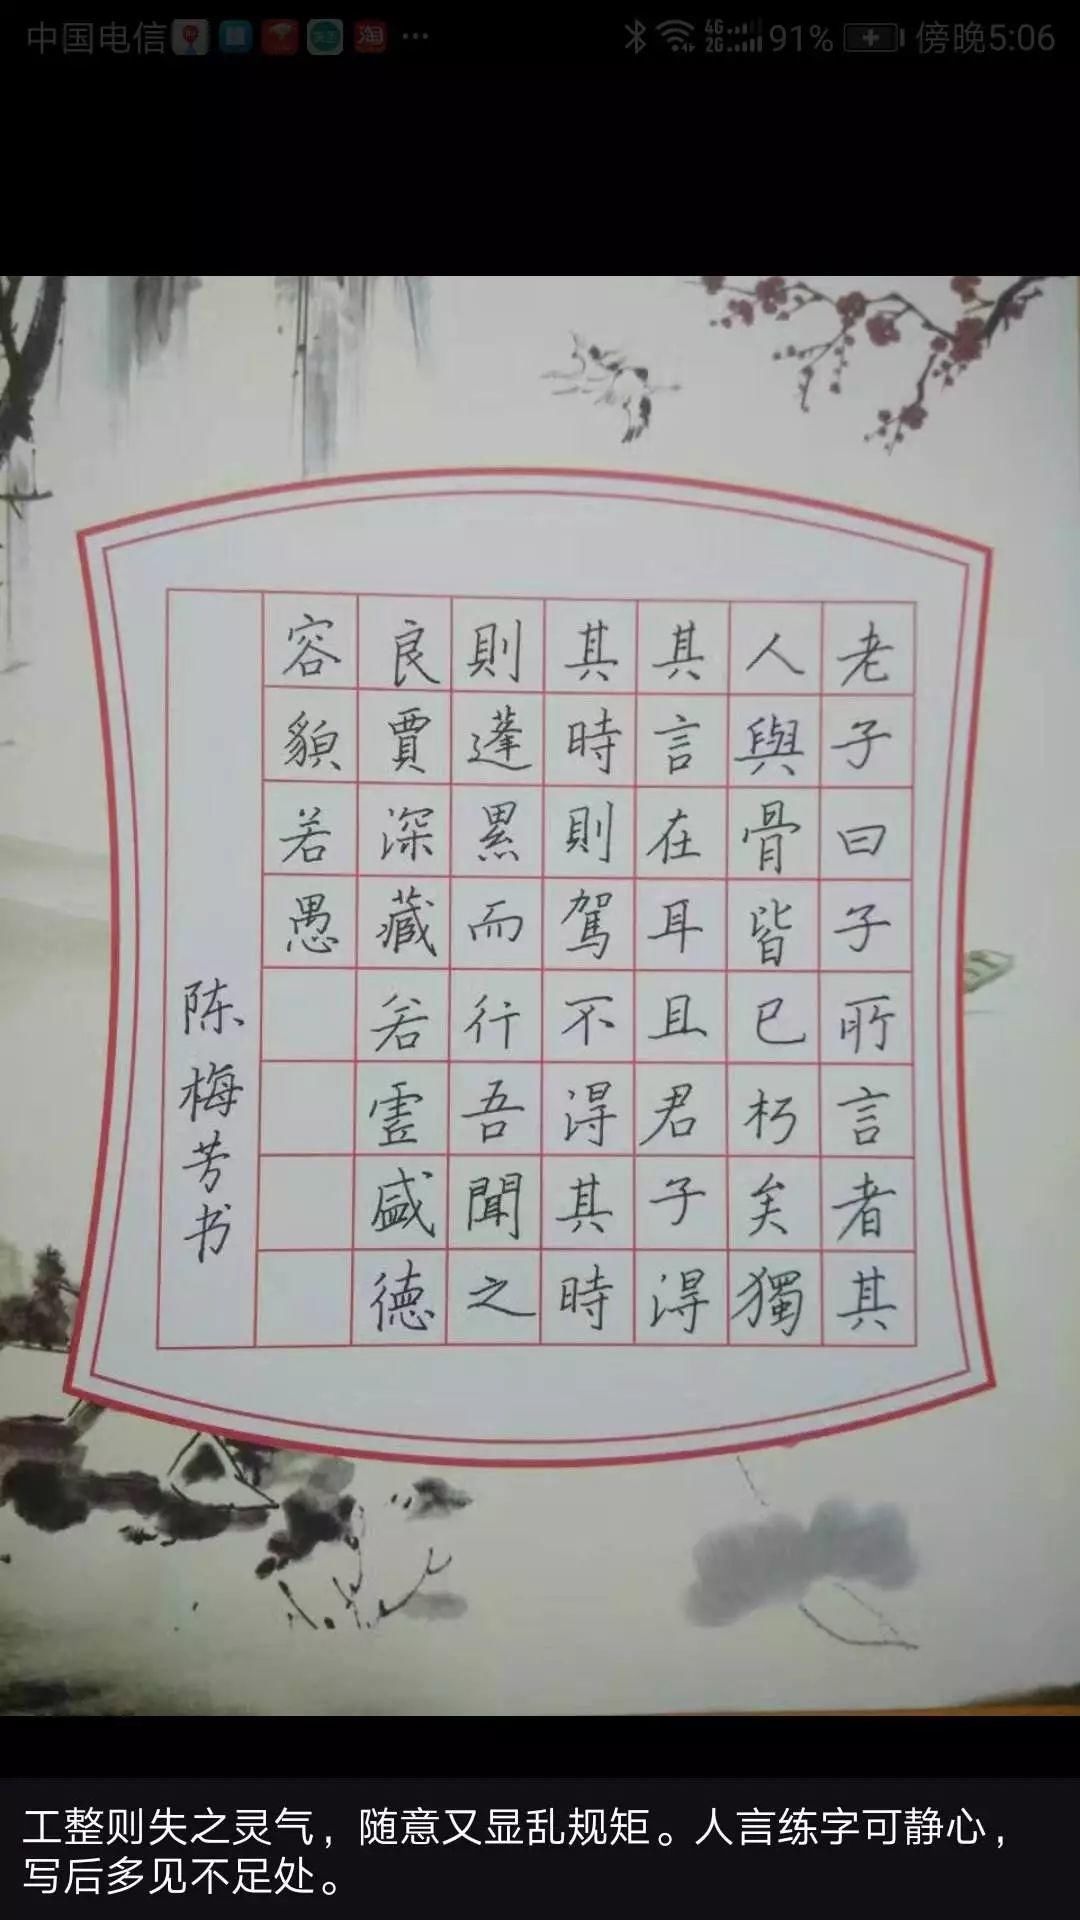 中国电信 淘 ··· 4G 2G 91% 傍晚5:06
老子曰子所言者其
人與骨皆已朽矣獨
其言在耳且君子得
其時則駕不得其時
則蓬累而行吾聞之
良賈深藏若虛盛德
容貌若愚
陈梅芳书
工整则失之灵气，随意又显乱规矩。人言练字可静心，
写后多见不足处。